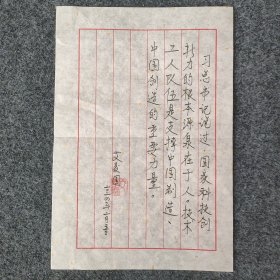 习总书记说过:国家科技创
新力的根本源泉在于人。技术
工人队伍是支撑中国制造、
中国创造的重要力量。
艾爱国